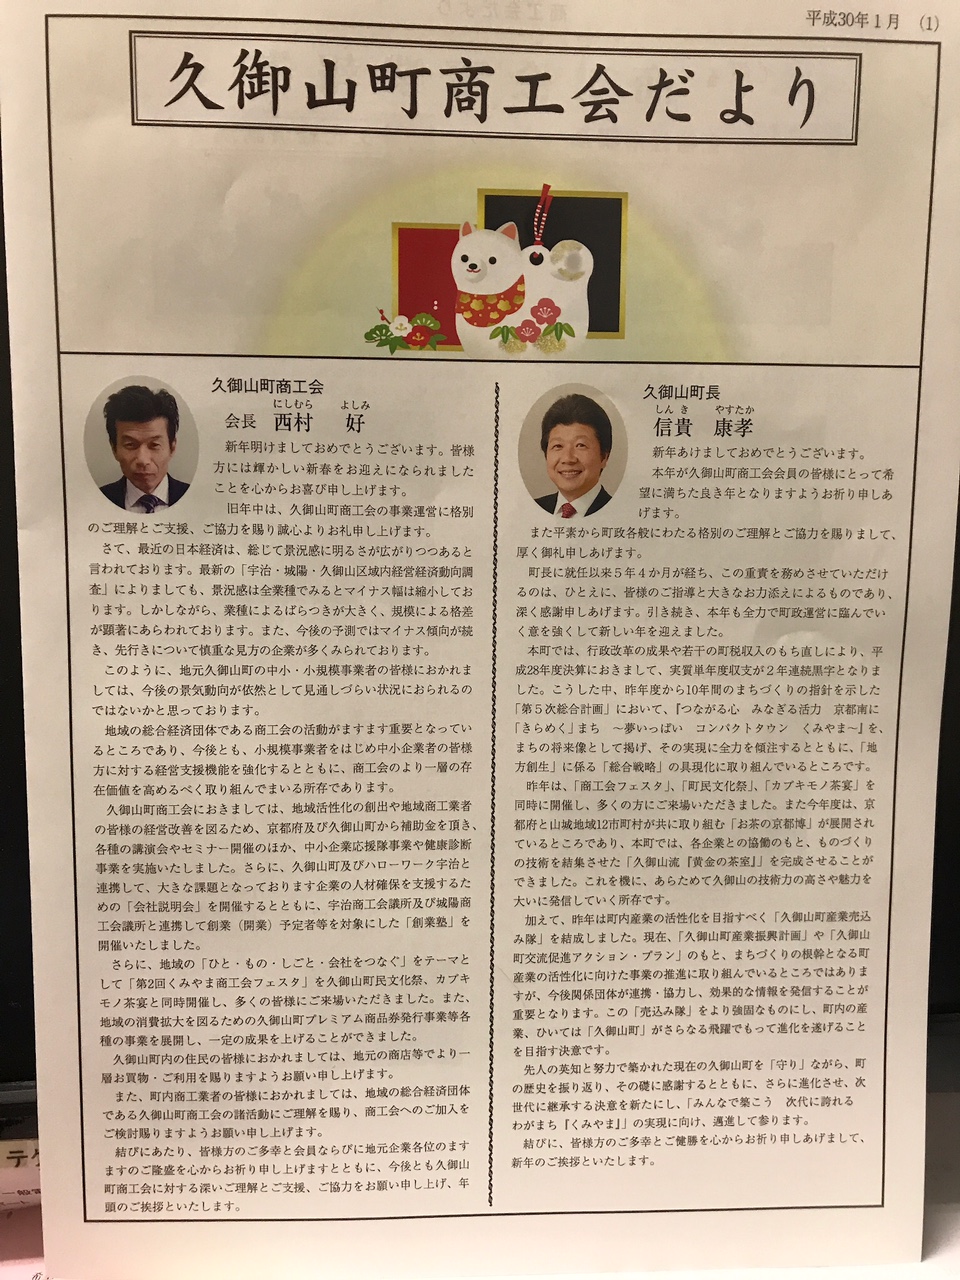 平成30年1月 (1)
久御山町商工会だより
久御山町商工会
にしむら よしみ
会長 西村 好
新年明けましておめでとうございます。皆様
方には輝かしい新春をお迎えになられました
ことを心からお喜び申し上げます。
旧年中は、久御山町商工会の事業運営に格別
のご理解とご支援、ご協力を賜り誠心よりお礼申し上げます。
さて、最近の日本経済は、総じて景況感に明るさが広がりつつあると
言われております。最新の「宇治・城陽・久御山区域内経営経済動向調
査」によりましても、景況感は全業種でみるとマイナス幅は縮小してお
ります。しかしながら、業種によるばらつきが大きく、規模による格差
が顕著にあらわれております。また、今後の予測ではマイナス傾向が続
き、先行きについて慎重な見方の企業が多くみられております。
このように、地元久御山町の中小・小規模事業者の皆様におかれま
しては、今後の景気動向が依然として見通しづらい状況におられるの
ではないかと思っております。
地域の総合経済団体である商工会の活動がますます重要となってい
るところであり、今後とも、小規模事業者をはじめ中小企業者の皆様
方に対する経営支援機能を強化するとともに、商工会のより一層の存
在価値を高めるべく取り組んでまいる所存であります。
久御山町商工会におきましては、地域活性化の創出や地域商工業者
の皆様の経営改善を図るため、京都府及び久御山町から補助金を頂き、
各種の講演会やセミナー開催のほか、中小企業応援隊事業や健康診断
事業を実施いたしました。さらに、久御山町及びハローワーク宇治と
連携して、大きな課題となっております企業の人材確保を支援するた
めの「会社説明会」を開催するとともに、宇治商工会議所及び城陽商
工会議所と連携して創業（開業）予定者等を対象にした「創業塾」を
開催いたしました。
さらに、地域の「ひと・もの・しごと・会社をつなぐ」をテーマと
して「第2回くみやま商工会フェスタ」を久御山町民文化祭、カブキ
モノ茶宴と同時開催し、多くの皆様にご来場いただきました。また、
地域の消費拡大を図るための久御山町プレミアム商品券発行事業等各
種の事業を展開し、一定の成果を上げることができました。
久御山町内の住民の皆様におかれましては、地元の商店等でより一
層お買物・ご利用を賜りますようお願い申し上げます。
また、町内商工業者の皆様におかれましては、地域の総合経済団体
である久御山町商工会の諸活動にご理解を賜り、商工会へのご加入を
ご検討賜りますようお願い申し上げます。
結びにあたり、皆様方のご多幸と会員ならびに地元企業各位のます
ますのご隆盛を心からお祈り申し上げますとともに、今後とも久御山
町商工会に対する深いご理解とご支援、ご協力をお願い申し上げ、年
頭のご挨拶といたします。
久御山町長
しん き やすたか
信貴 康孝
新年あけましておめでとうございます。
本年が久御山町商工会会員の皆様にとって希
望に満ちた良き年となりますようお祈り申しあ
げます。
また平素から町政各般にわたる格別のご理解とご協力を賜りまして、
厚く御礼申しあげます。
町長に就任以来5年4か月が経ち、この重責を務めさせていただけ
るのは、ひとえに、皆様のご指導と大きなお力添えによるものであり、
深く感謝申しあげます。引き続き、本年も全力で町政運営に臨んでい
く意を強くして新しい年を迎えました。
本町では、行政改革の成果や若干の町税収入のもち直しにより、平
成28年度決算におきまして、実質単年度収支が2年連続黒字となりま
した。こうした中、昨年度から10年間のまちづくりの指針を示した
「第5次総合計画」において、『つながる心 みなぎる活力 京都南に
「きらめく」まち ～夢いっぱい コンパクトタウン くみやま～』を、
まちの将来像として掲げ、その実現に全力を傾注するとともに、「地
方創生」に係る「総合戦略」の具現化に取り組んでいるところです。
昨年は、「商工会フェスタ」、「町民文化祭」、「カブキモノ茶宴」を
同時に開催し、多くの方にご来場いただきました。また今年度は、京
都府と山城地域12市町村が共に取り組む「お茶の京都博」が展開され
ているところであり、本町では、各企業との協働のもと、ものづくり
の技術を結集させた「久御山流『黄金の茶室』」を完成させることが
できました。これを機に、あらためて久御山の技術力の高さや魅力を
大いに発信していく所存です。
加えて、昨年は町内産業の活性化を目指すべく「久御山町産業売込
み隊」を結成しました。現在、「久御山町産業振興計画」や「久御山
町交流促進アクション・プラン」のもと、まちづくりの根幹となる町
産業の活性化に向けた事業の推進に取り組んでいるところではありま
すが、今後関係団体が連携・協力し、効果的な情報を発信することが
重要となります。この「売込み隊」をより強固なものにし、町内の産
業、ひいては「久御山町」がさらなる飛躍でもって進化を遂げること
を目指す決意です。
先人の英知と努力で築かれた現在の久御山町を「守り」ながら、町
の歴史を振り返り、その礎に感謝するとともに、さらに進化させ、次
世代に継承する決意を新たにし、「みんなで築こう 次代に誇れる
わがまち『くみやま』」の実現に向け、邁進して参ります。
結びに、皆様方のご多幸とご健勝を心からお祈り申しあげまして、
新年のご挨拶といたします。